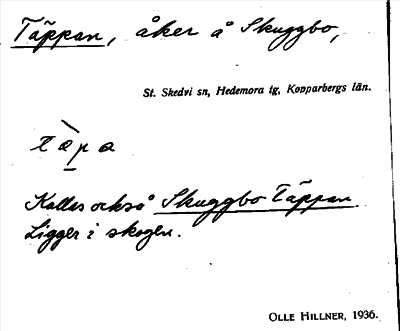 Täppan, åker å Skuggbo,
St. Skedvi sn, Hedemora tg, Kopparbergs län.
tàpa
Kallas också Skuggbo Täppan.
Ligger i skogen.
OLLE HILLNER, 1936.